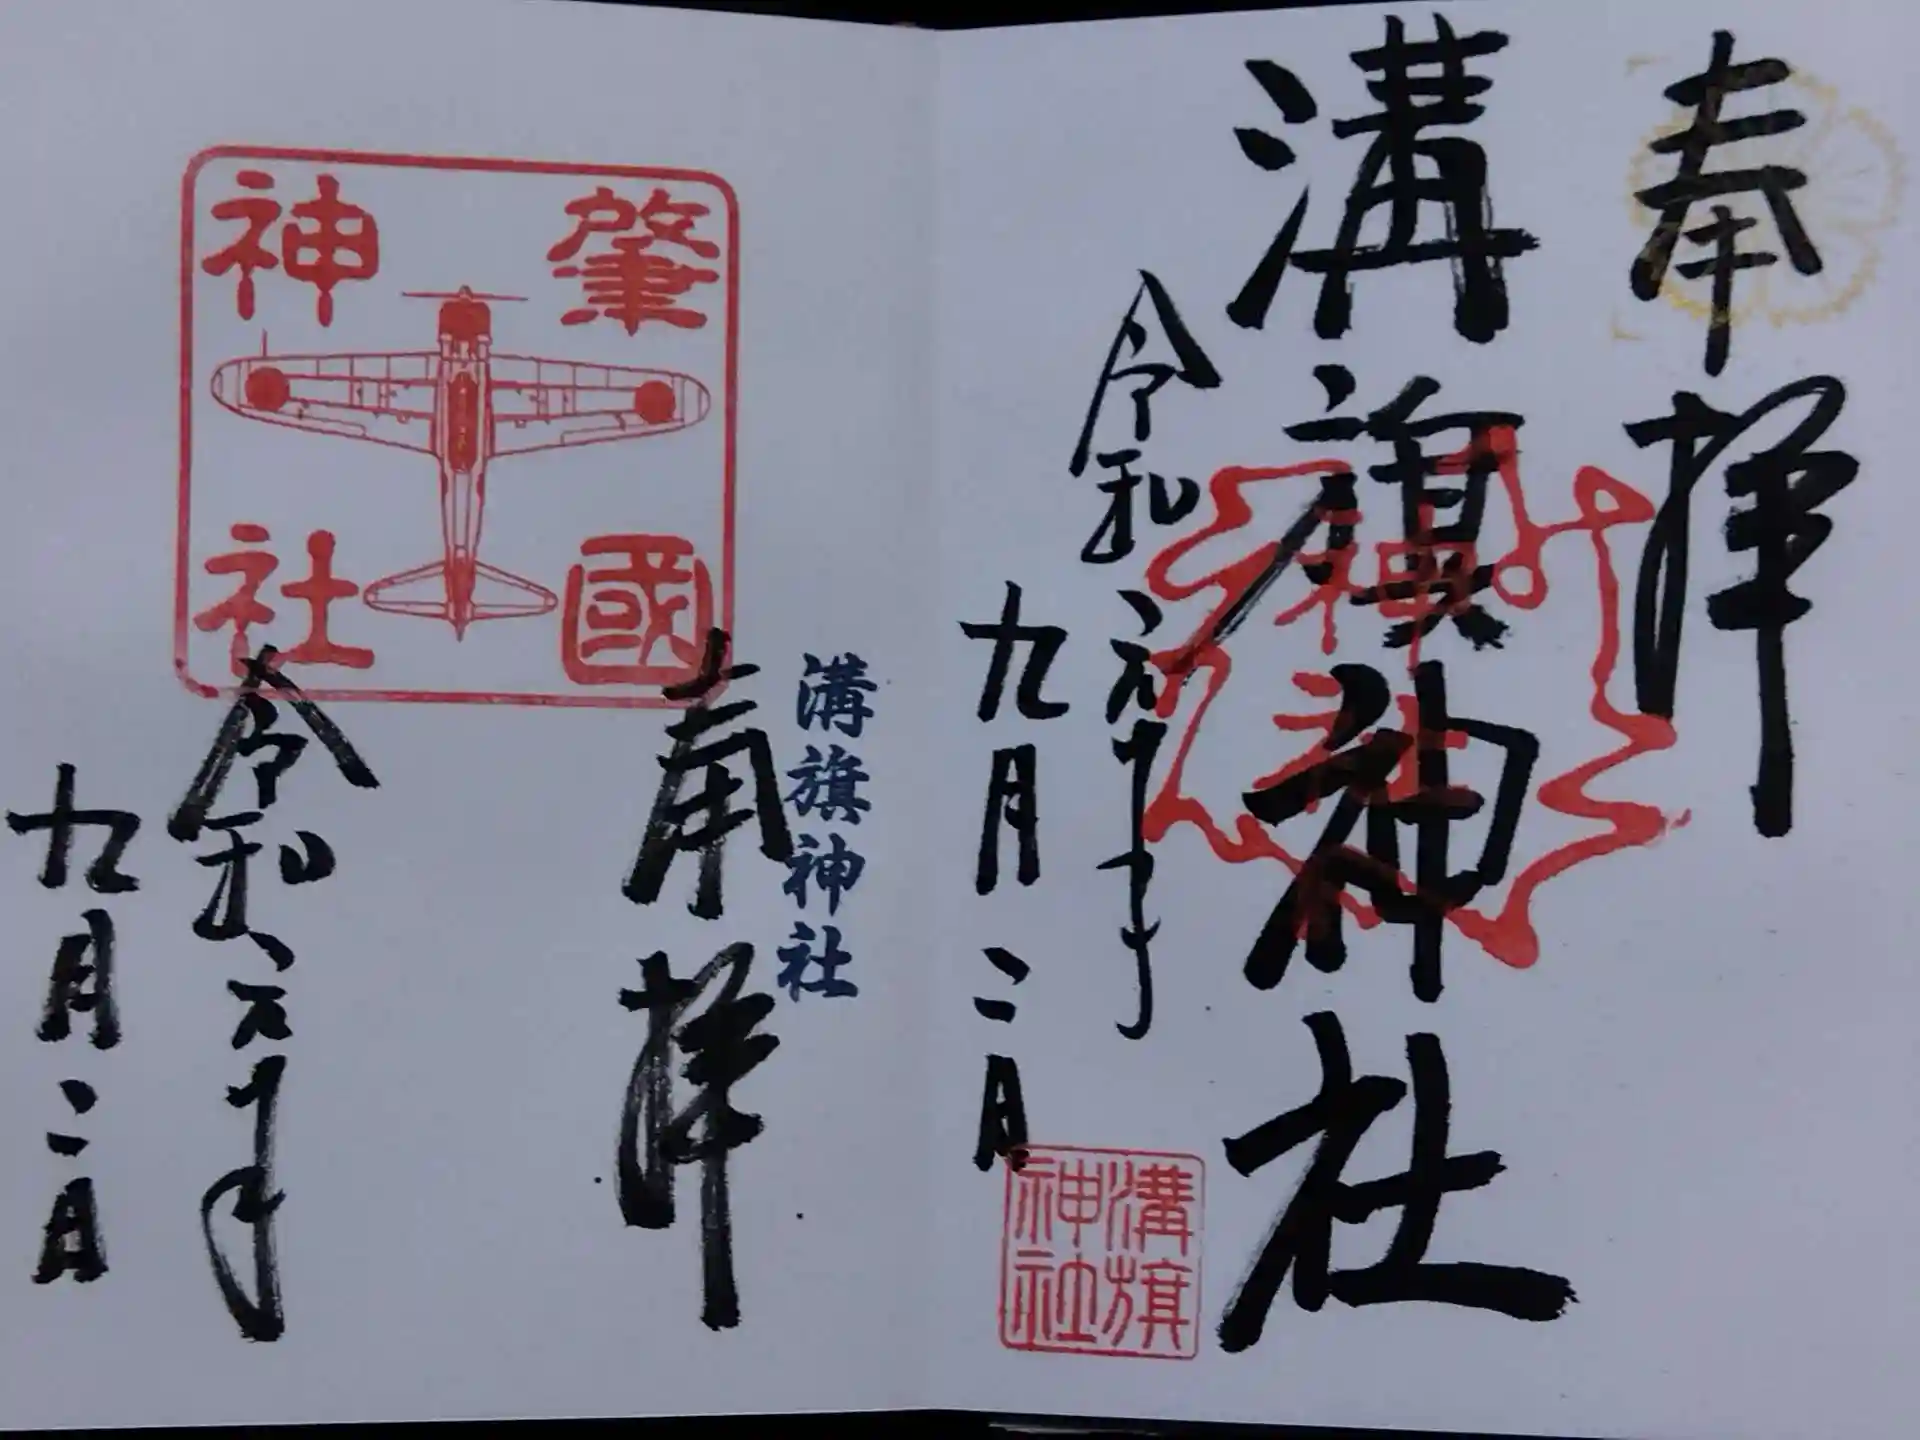 奉拝
溝旗神社
神社
令和六年
九月二日
溝旗神社
溝旗神社
奉拝
肇國神社
令和六年
九月二日